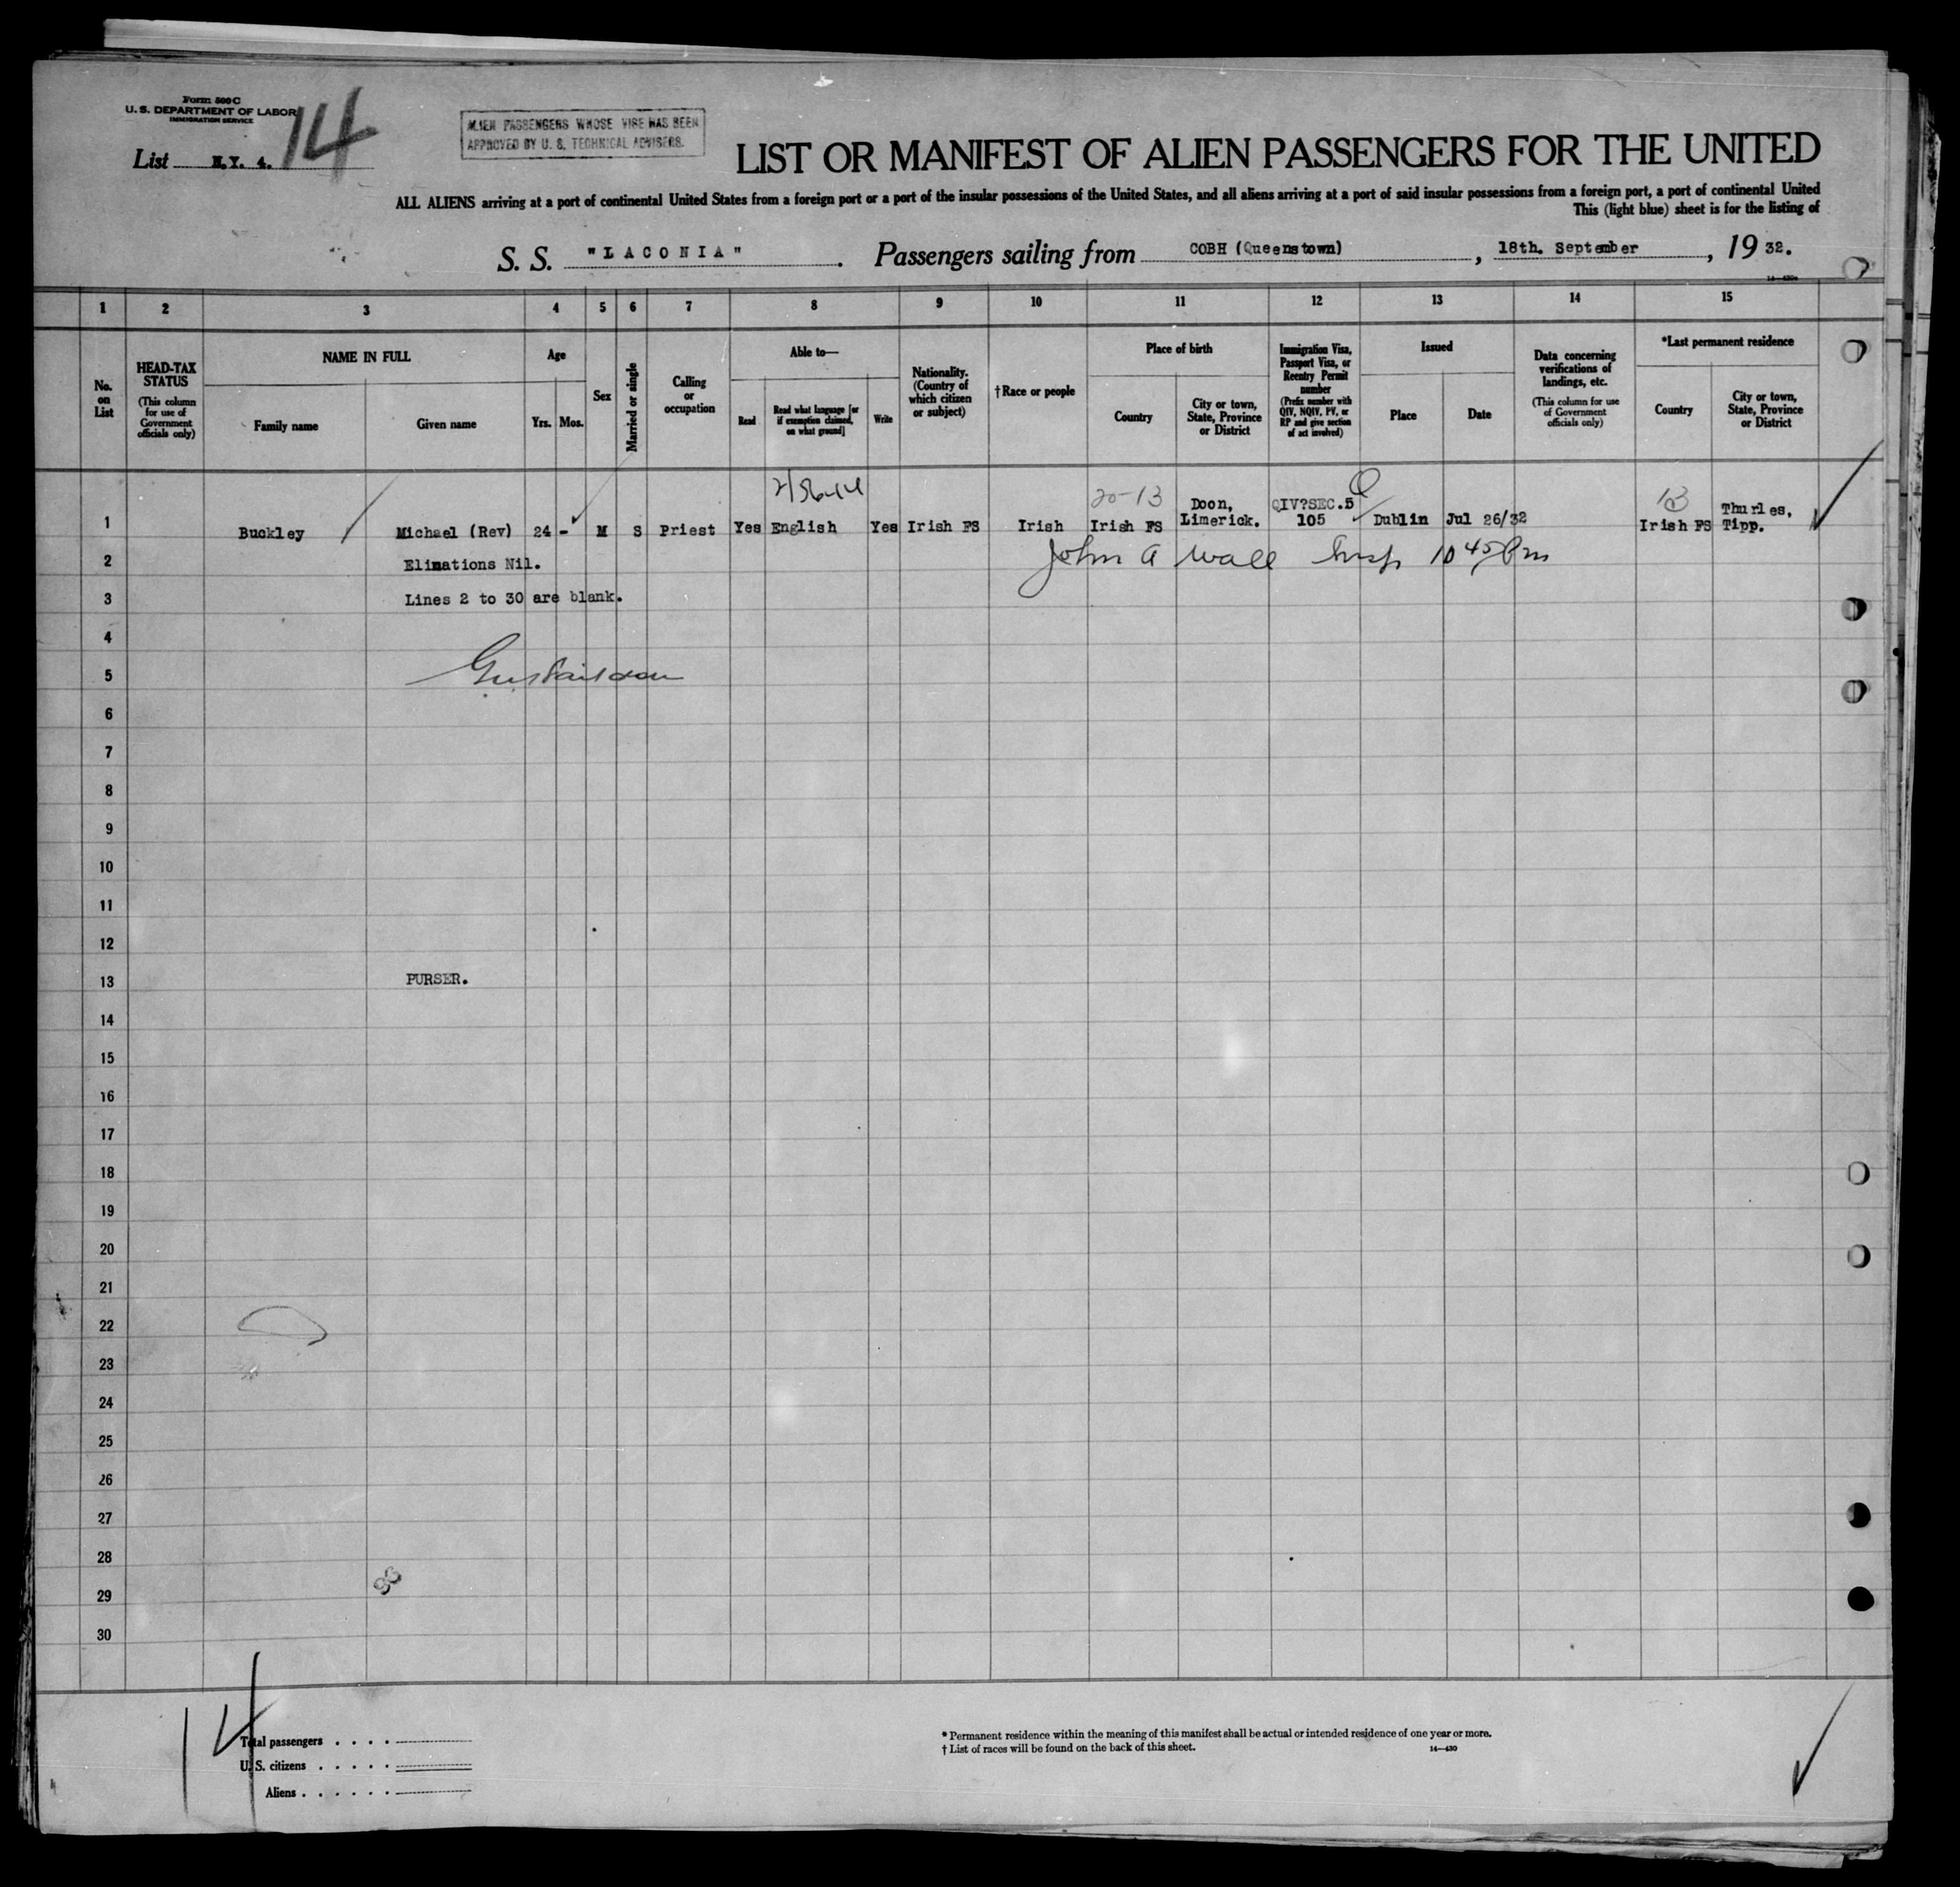 Form 500 C
U. S. DEPARTMENT OF LABOR
IMMIGRATION SERVICE
List N.Y. 4. 14
ALIEN PASSENGERS WHOSE VISE HAS BEEN
APPROVED BY U. S. TECHNICAL ADVISERS.
LIST OR MANIFEST OF ALIEN PASSENGERS FOR THE UNITED
ALL ALIENS arriving at a port of continental United States from a foreign port or a port of the insular possessions of the United States, and all aliens arriving at a port of said insular possessions from a foreign port, a port of continental United
This (light blue) sheet is for the listing of
S. S. "LACONIA" . Passengers sailing from COBH (Queenstown) , 18th. September , 19 32.
1 2 3 4 5 6 7 8 9 10 11 12 13 14 15
No. on List
HEAD-TAX STATUS (This column for use of Government officials only)
NAME IN FULL
Family name
Given name
Age
Yrs. Mos.
Sex
Married or single
Calling or occupation
Able to—
Read
Read what language [or if exemption claimed, on what ground]
Write
Nationality. (Country of which citizen or subject)
†Race or people
Place of birth
Country
City or town, State, Province or District
Immigration Visa, Passport Visa, or Reentry Permit number (Prefix number with QIV, NQIV, PV, or RP and give section of act involved)
Issued
Place
Date
Data concerning verifications of landings, etc. (This column for use of Government officials only)
*Last permanent residence
Country
City or town, State, Province or District
20-13
1 Buckley Michael (Rev) 24 - M S Priest Yes English Yes Irish FS Irish Irish FS Doon, Limerick. QIV?SEC.5 105 Dublin Jul 26/32 Irish FS Thurles, Tipp.
2 Elimations Nil. John A Wall Insp 10 45 Pm
3 Lines 2 to 30 are blank.
4
5
6
7
8
9
10
11
12
13 PURSER.
14
15
16
17
18
19
20
21
22
23
24
25
26
27
28
29
30
14
Total passengers . . . .
U. S. citizens . . . . .
Aliens . . . . . .
* Permanent residence within the meaning of this manifest shall be actual or intended residence of one year or more.
† List of races will be found on the back of this sheet.
14—430